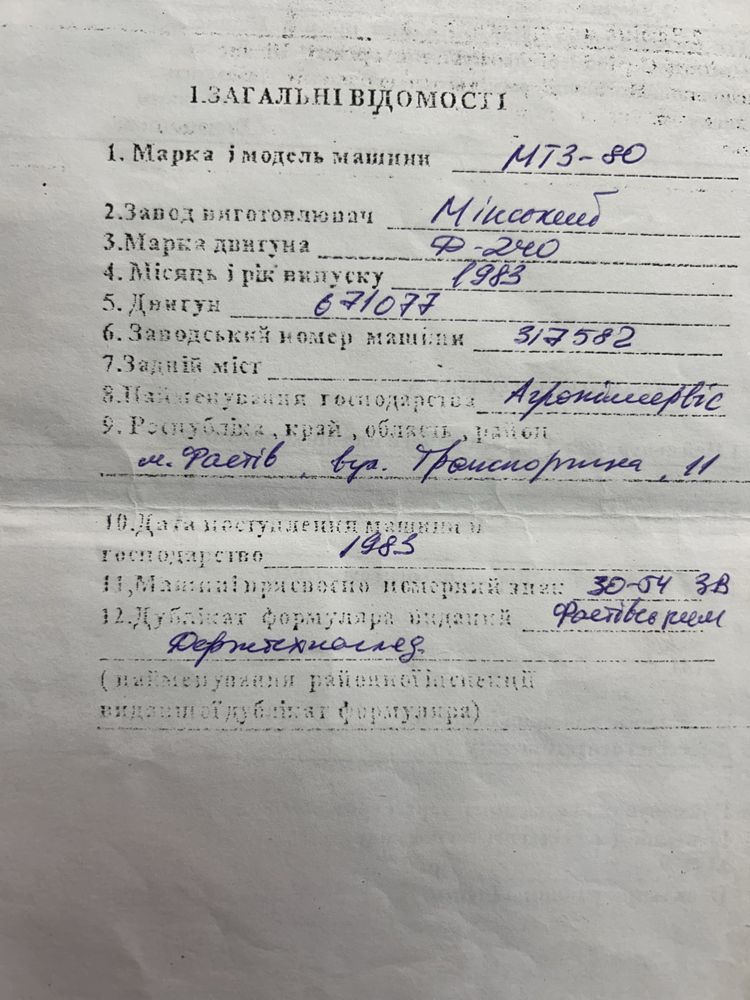 1.ЗАГАЛЬНІ ВІДОМОСТІ
1. Марка і модель машини МТЗ-80
2.Завод виготовлювач Мінський
3.Марка двигуна Ф-240
4. Місяць і рік випуску 1983
5. Двигун 671077
6. Заводський номер машини 317582
7.Задній міст
8.Найменування господарства
9. Республіка , край , область , район
м. Фастів , вул. Транспортна , 11
10.Дата поступлення машини в
господарство 1983
11,Машині присвоєно номерний знак 30-54 ЗВ
12.Дублікат формуляра виданий Фастівським
Держтехнагляд.
( найменування районної інспекції
виданшої дублікат формуляра)